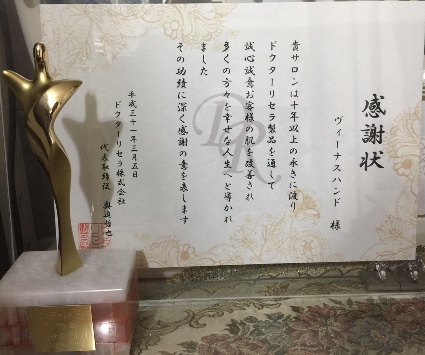 感謝状
ヴィーナスハンド 様
貴サロンは十年以上の永きに渡り
ドクターリセラ製品を通して
誠心誠意お客様の肌を改善され
多くの方々を幸せな人生へと導かれ
ました
その功績に深く感謝の意を表します
平成三十一年三月五日
ドクターリセラ株式会社
代表取締役 奥迫哲也